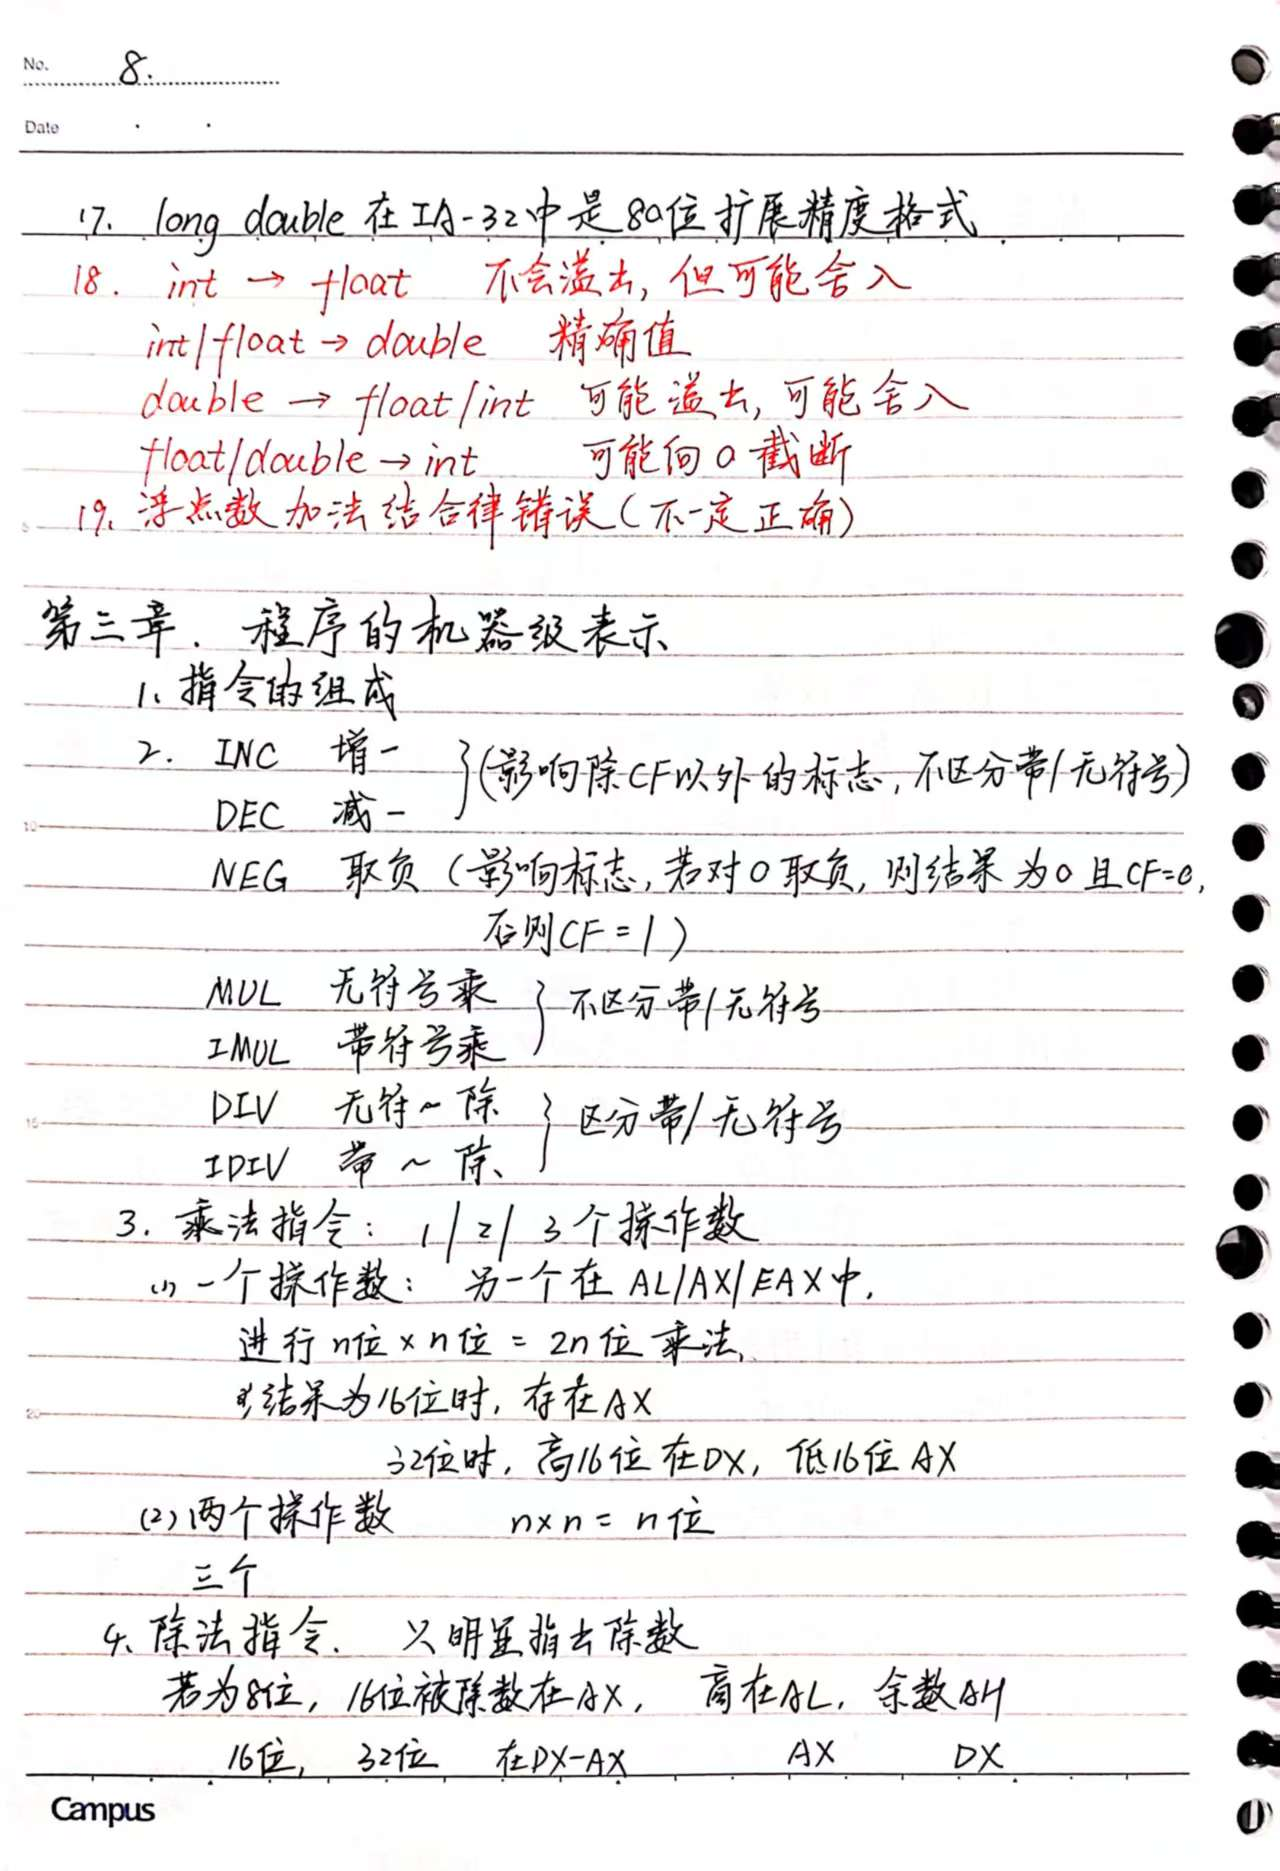 No. 8.
Date
17. long double 在 IA-32中是80位扩展精度格式
18. int → float 不会溢出, 但可能舍入
int/float → double 精确值
double → float/int 可能溢出, 可能舍入
float/double → int 可能向0截断
19. 浮点数加法结合律错误(不一定正确)
5
第三章. 程序的机器级表示
1. 指令的组成
2. INC 增一
}(影响除CF以外的标志, 不区分带/无符号)
10
DEC 减一
NEG 取负 (影响标志, 若对0取负, 则结果为0且CF=0,
否则CF=1)
MUL 无符号乘
} 不区分带/无符号
IMUL 带符号乘
15
DIV 无符~除
} 区分带/无符号
IDIV 带 ~ 除
3. 乘法指令: 1/2/3个操作数
(1) 一个操作数: 另一个在 AL/AX/EAX中.
进行n位×n位=2n位乘法,
结果为16位时, 存在AX
20
32位时, 高16位在DX, 低16位AX
(2) 两个操作数 n×n=n位
三个
4. 除法指令. 只明显指出除数
若为8位, 16位被除数在AX, 商在AL. 余数AH
16位, 32位 在DX-AX AX DX
Campus